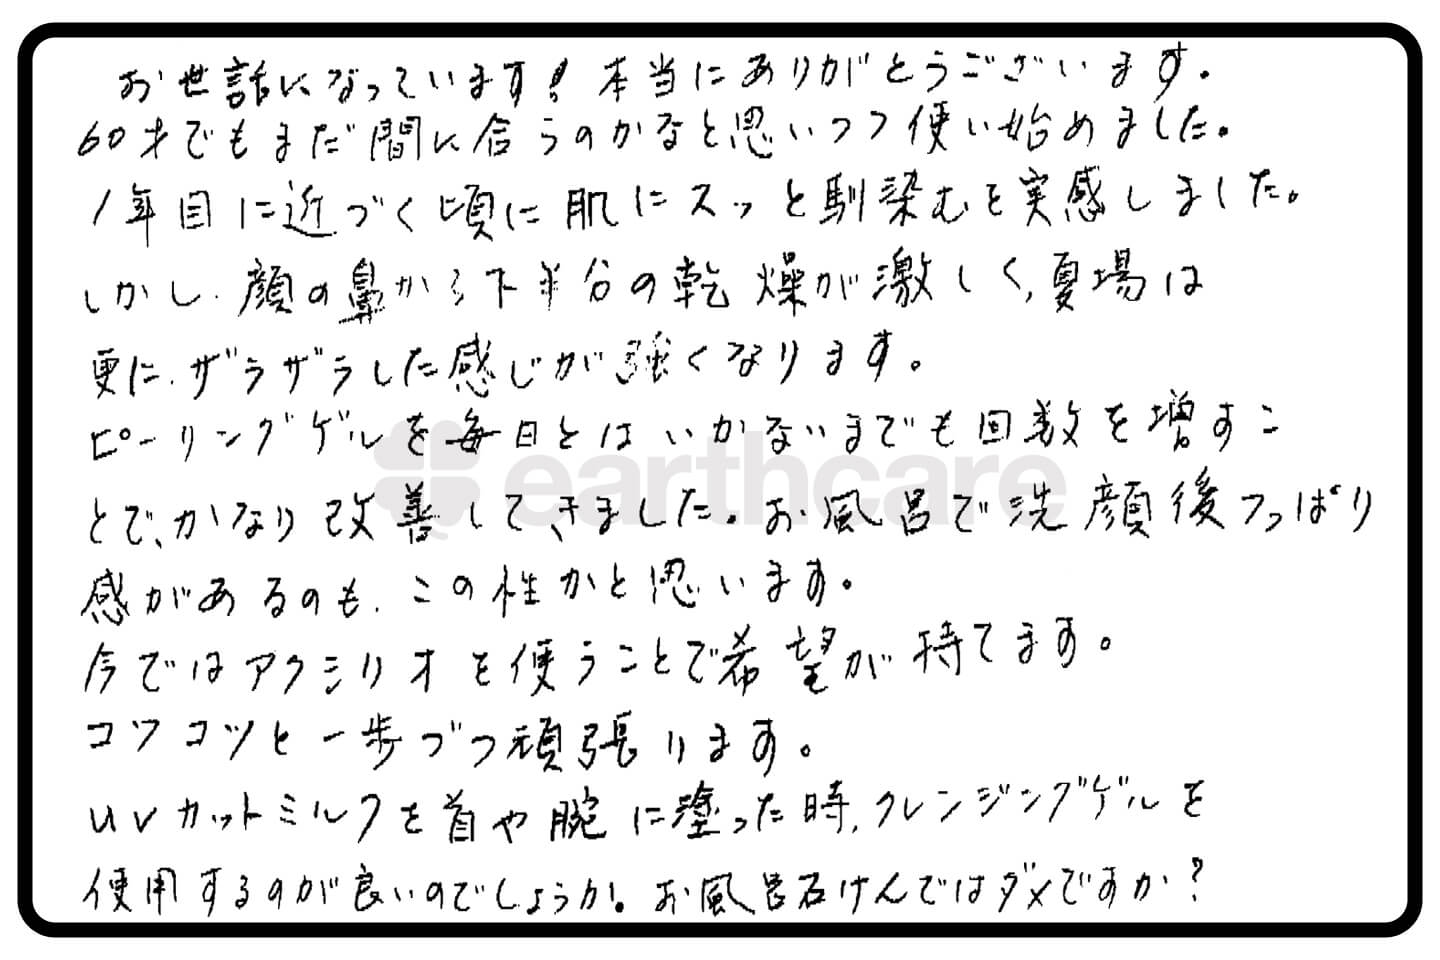 お世話になっています! 本当にありがとうございます。
60才でもまだ間に合うのかなと思いつつ使い始めました。
1年目に近づく頃に肌にスッと馴染むを実感しました。
しかし、顔の鼻から下半分の乾燥が激しく、夏場は
更に、ザラザラした感じが強くなります。
ピーリングゲルを毎日とはいかないまでも回数を増すこ
とで、かなり改善してきました。お風呂で洗顔後つっぱり
感があるのも、この性かと思います。
今ではアクシリオを使うことで希望が持てます。
コツコツと一歩づつ頑張ります。
UVカットミルクを首や腕に塗った時、クレンジングゲルを
使用するのが良いのでしょうか。お風呂石けんではダメですか?
earthcare